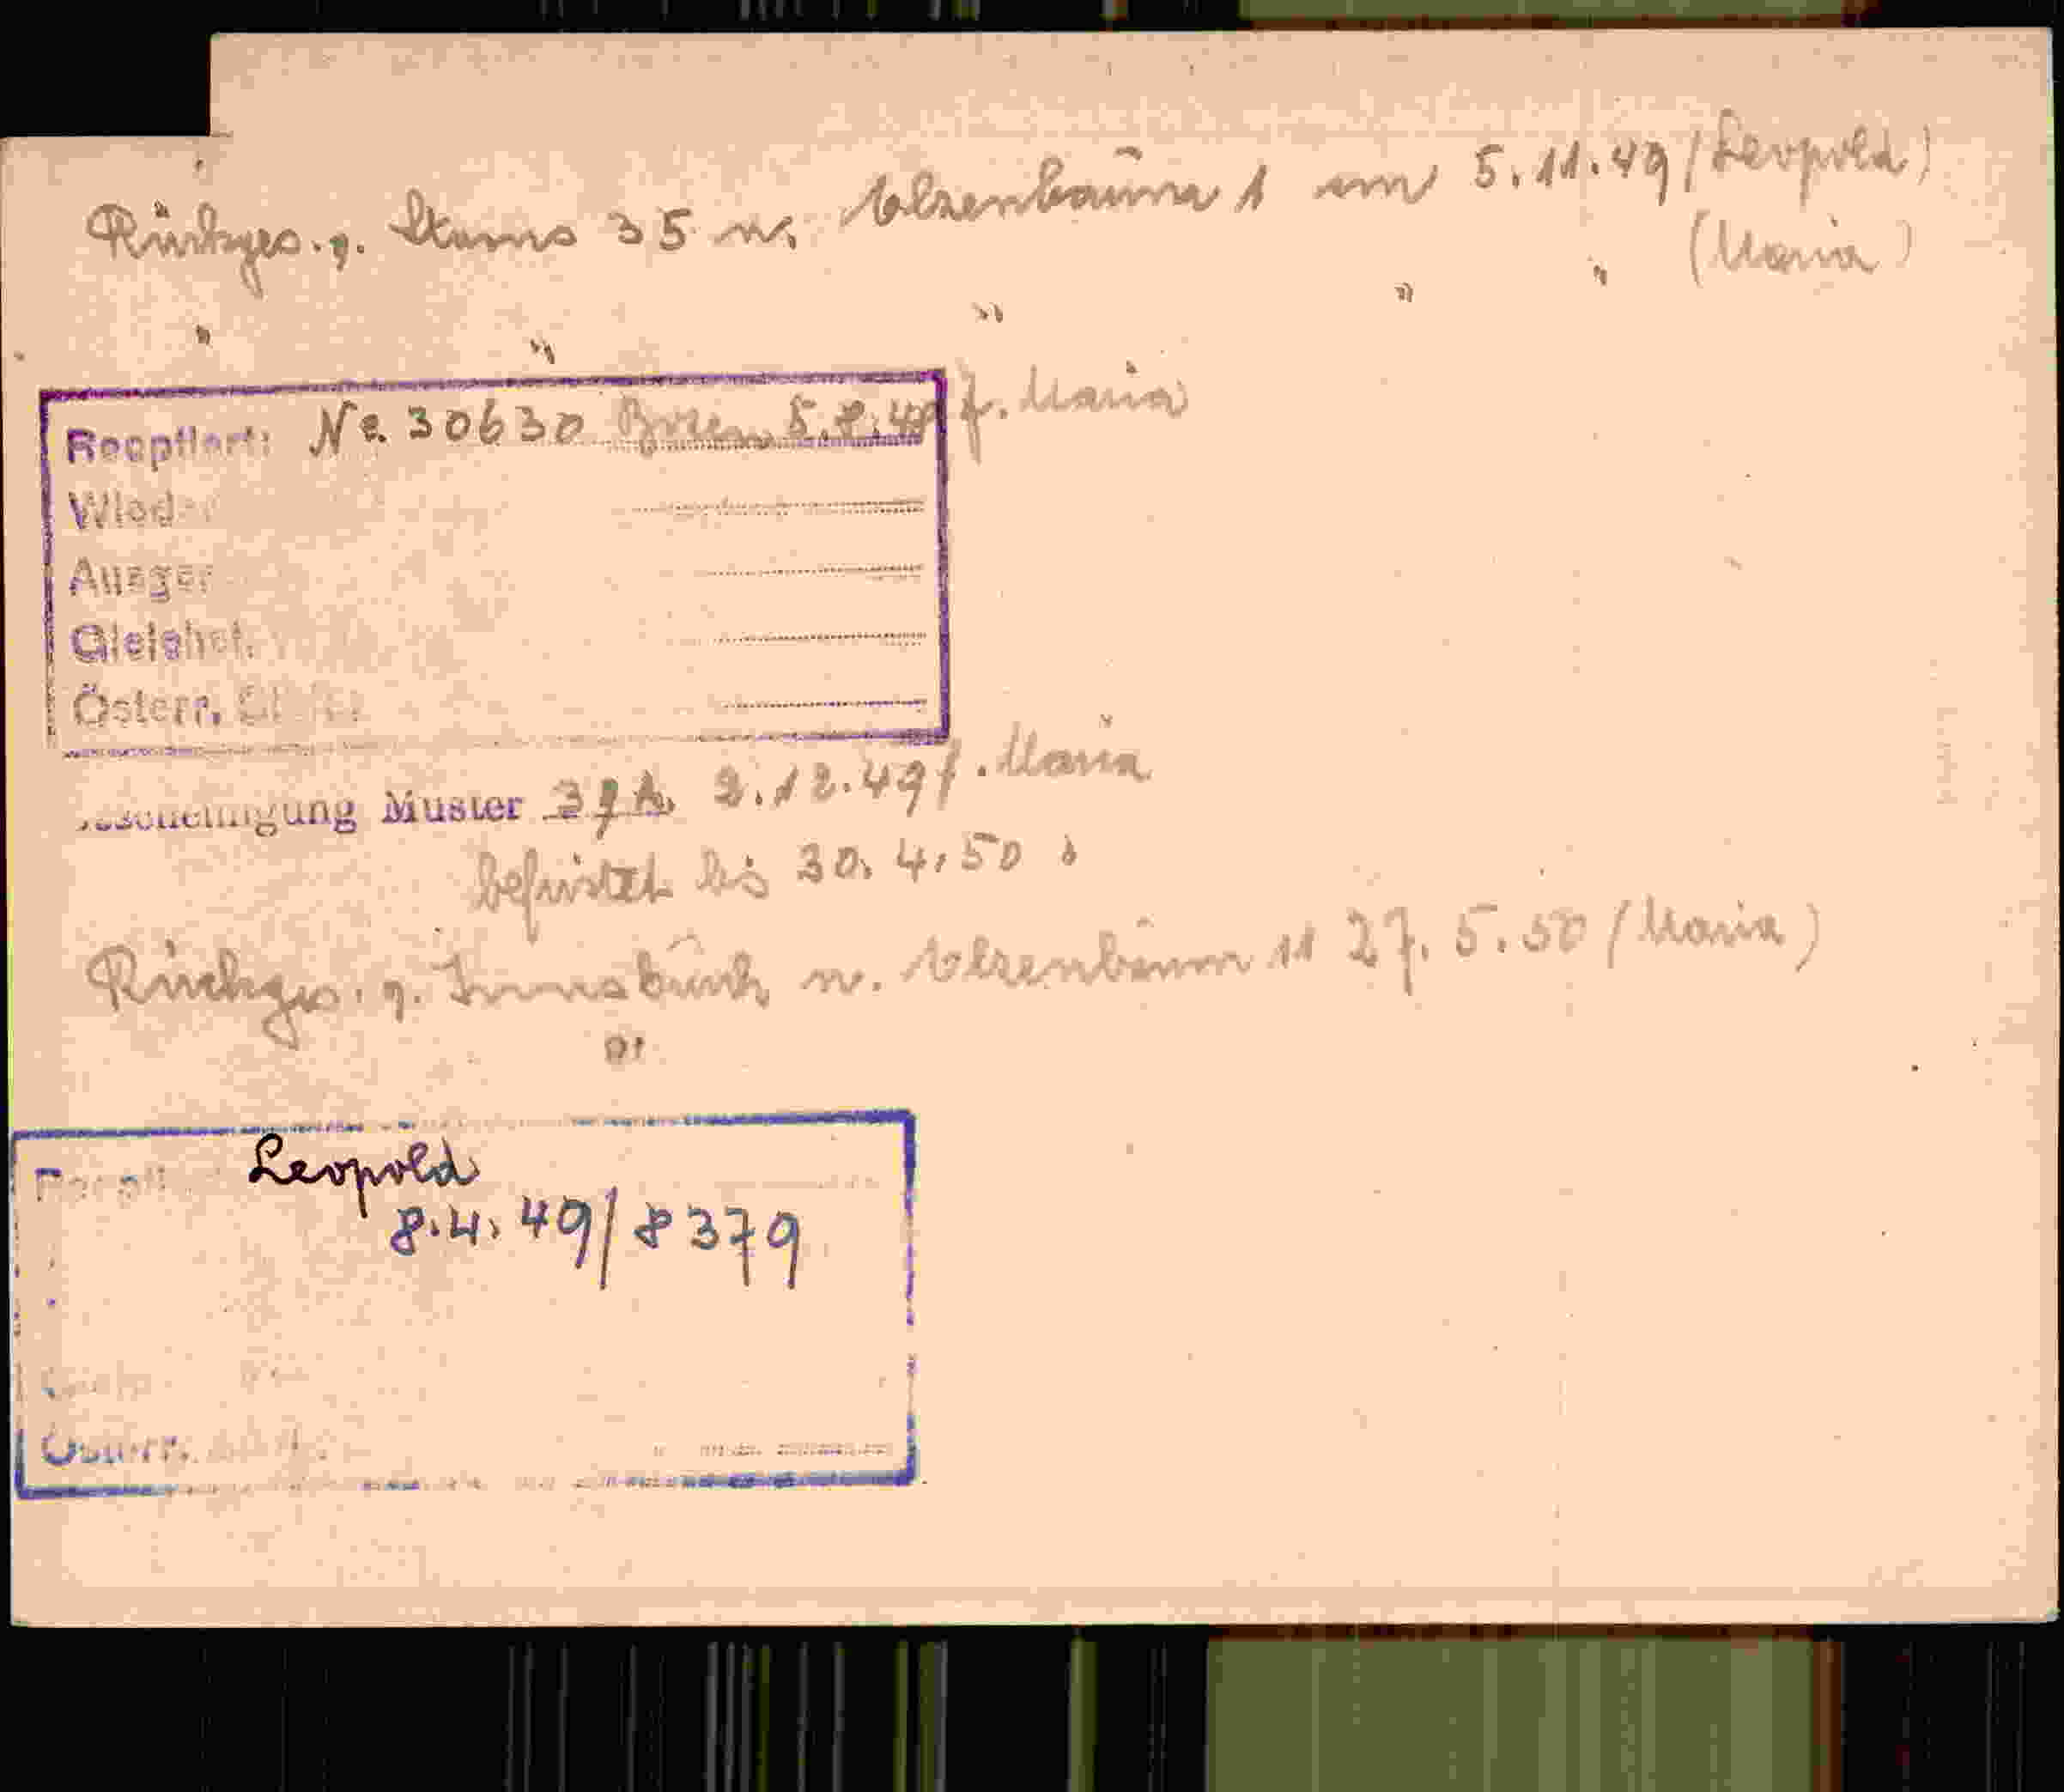 Rückges. g. Stams 35 n. Elzenbaum 1 am 5.11.49 (Leopold)
" " " " " (Maria)
Reoptiert: No. 30630 Bozen 5.8.49 f. Maria
Wieder
Ausger
Gleichst.
Österr.
Bescheinigung Muster 2.12.49 f. Maria
befristet bis 30.4.50
Rückges. g. Innsbruck n. Elzenbaum 11 27.5.50 (Maria)
Leopold
8.4.49/8379
Österr.